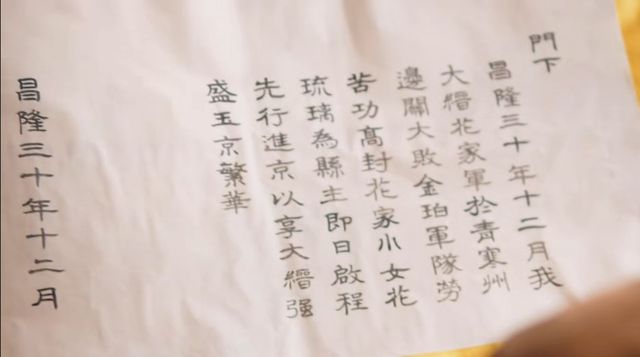 門下
昌隆三十年十二月我
大缙花家軍於青寒州
邊關大敗金珀軍隊勞
苦功高封花家小女花
琉璃為縣主即日啟程
先行進京以享大缙强
盛玉京繁華
昌隆三十年十二月